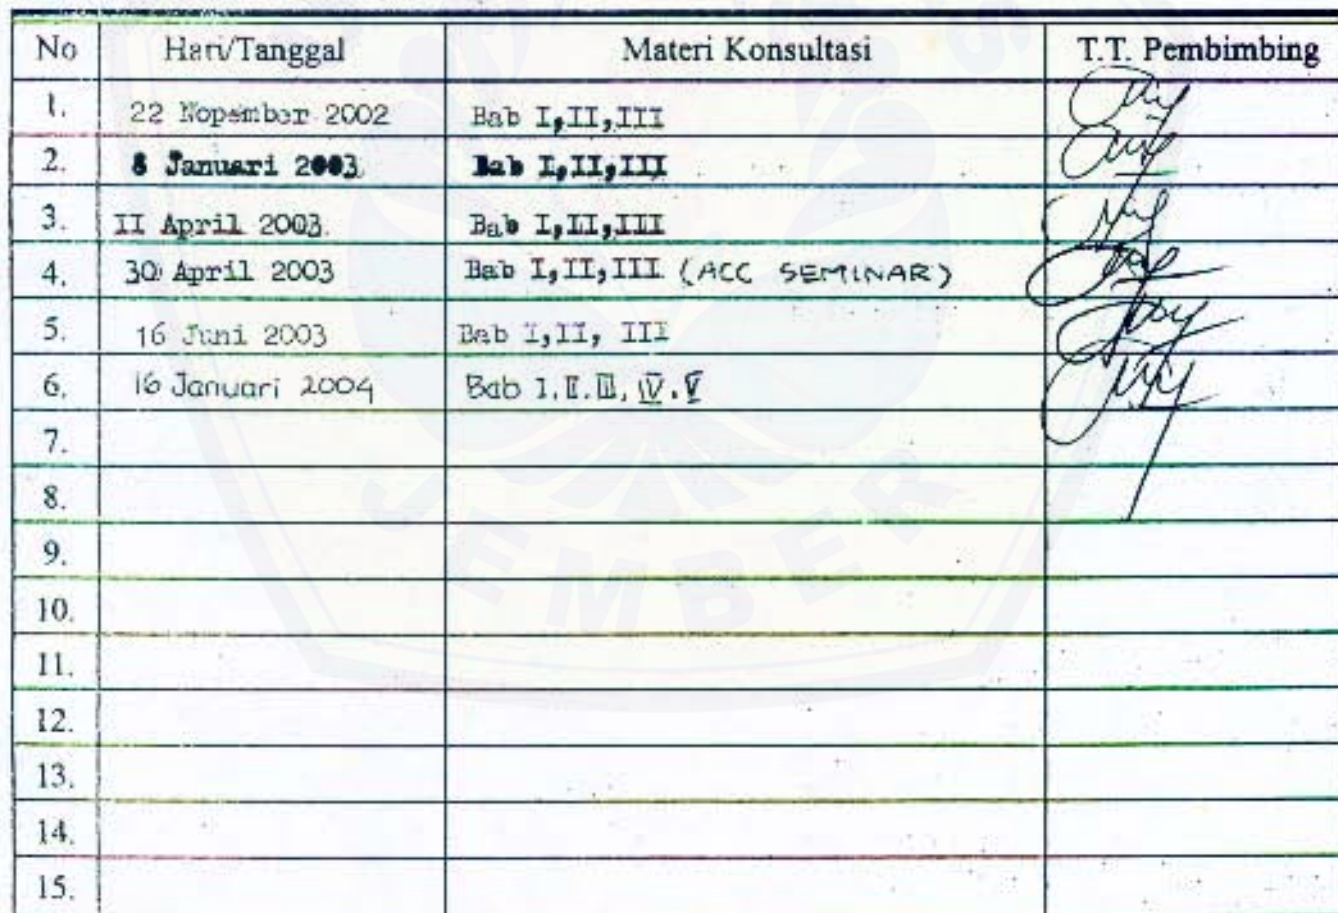 No Hari/Tanggal Materi Konsultasi T.T. Pembimbing
1. 22 Nopember 2002 Bab I,II,III
2. 8 Januari 2003 Bab I,II,III
3. II April 2003 Bab I,II,III
4. 30 April 2003 Bab I,II,III (ACC SEMINAR)
5. 16 Juni 2003 Bab I,II, III
6. 16 Januari 2004 Bab I.II.III, IV.V
7.
8.
9.
10.
11.
12.
13.
14.
15.
JEMBER